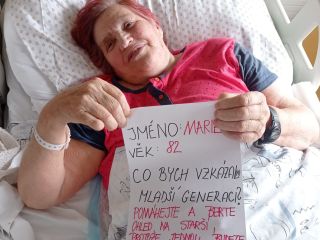 JMÉNO: MARIE
VĚK: 82
CO BYCH VZKÁZALA
MLADŠÍ GENERACI?
POMÁHEJTE A BERTE
OHLED NA STARŠÍ,
PROTOŽE JEDNOU BUDETE